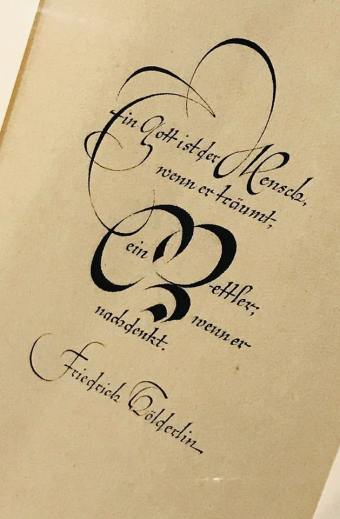 Ein Gott ist der Mensch,
wenn er träumt,
ein Bettler,
wenn er
nachdenkt.
Friedrich Hölderlin